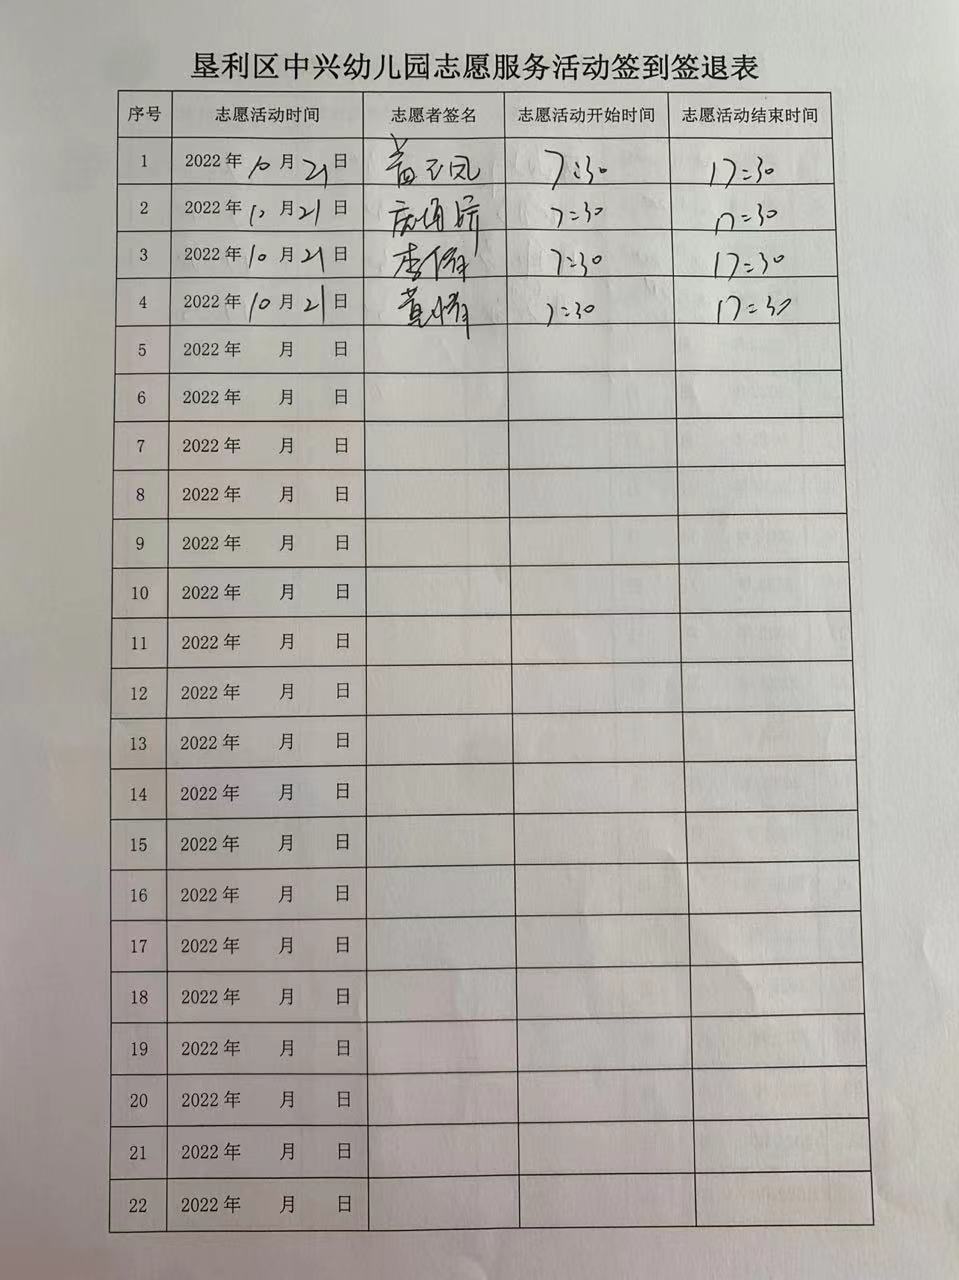 垦利区中兴幼儿园志愿服务活动签到签退表
序号 志愿活动时间 志愿者签名 志愿活动开始时间 志愿活动结束时间
1 2022年10月21日 7:30 17:30
2 2022年10月21日 7:30 17:30
3 2022年10月21日 李 7:30 17:30
4 2022年10月21日 黄 7:30 17:30
5 2022年 月 日
6 2022年 月 日
7 2022年 月 日
8 2022年 月 日
9 2022年 月 日
10 2022年 月 日
11 2022年 月 日
12 2022年 月 日
13 2022年 月 日
14 2022年 月 日
15 2022年 月 日
16 2022年 月 日
17 2022年 月 日
18 2022年 月 日
19 2022年 月 日
20 2022年 月 日
21 2022年 月 日
22 2022年 月 日